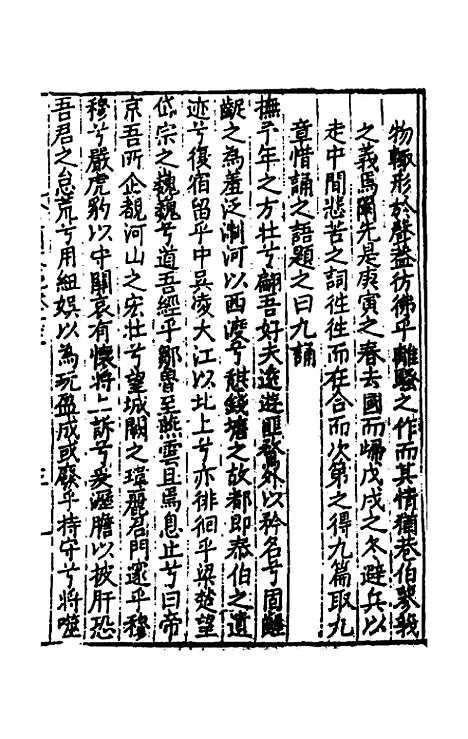 物輙形於聲葢彷彿乎離騷之作而其情猶巷伯蓼莪
之義焉爾先是庚寅之春去國而歸戊戌之冬避兵以
走中間悲苦之詞徃徃而在合而次第之得九篇取九
章惜誦之語題之曰九誦
撫予年之方壮兮翩吾好夫逺遊匪騖外以矜名兮固齷
齪之為羞泛淛河以西渡兮棋錢塘之故都即泰伯之遺
迹兮復宿留乎中吳凌大江以北上兮亦徘徊乎梁楚望
岱宗之巍巍兮道吾經乎鄒魯至燕雲且焉息止兮曰帝
京吾所企覩河山之宏壮兮望城闕之瑋麗君門邃乎穆
穆兮嚴虎豹以中關哀有懷將上訴兮爰瀝膽以披肝恐
吾君之怠荒兮用組娱以為玩盈成或廢乎持守兮將噬